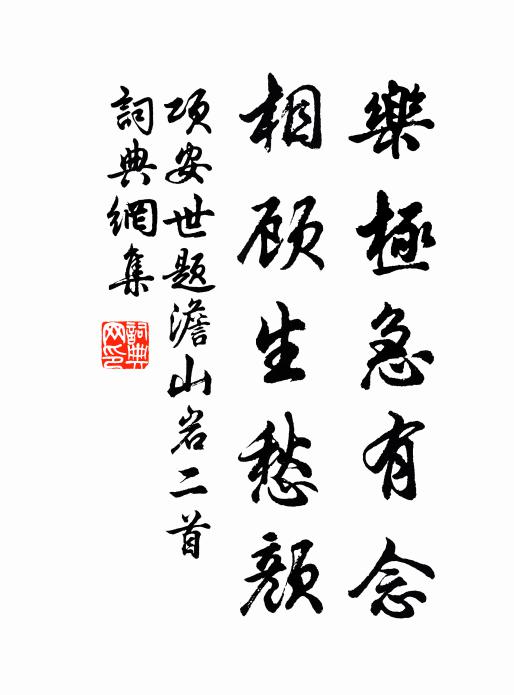 樂極急有念
相顾生愁顏
项安世题澹山岩二首
詞典網集
詞典
网印